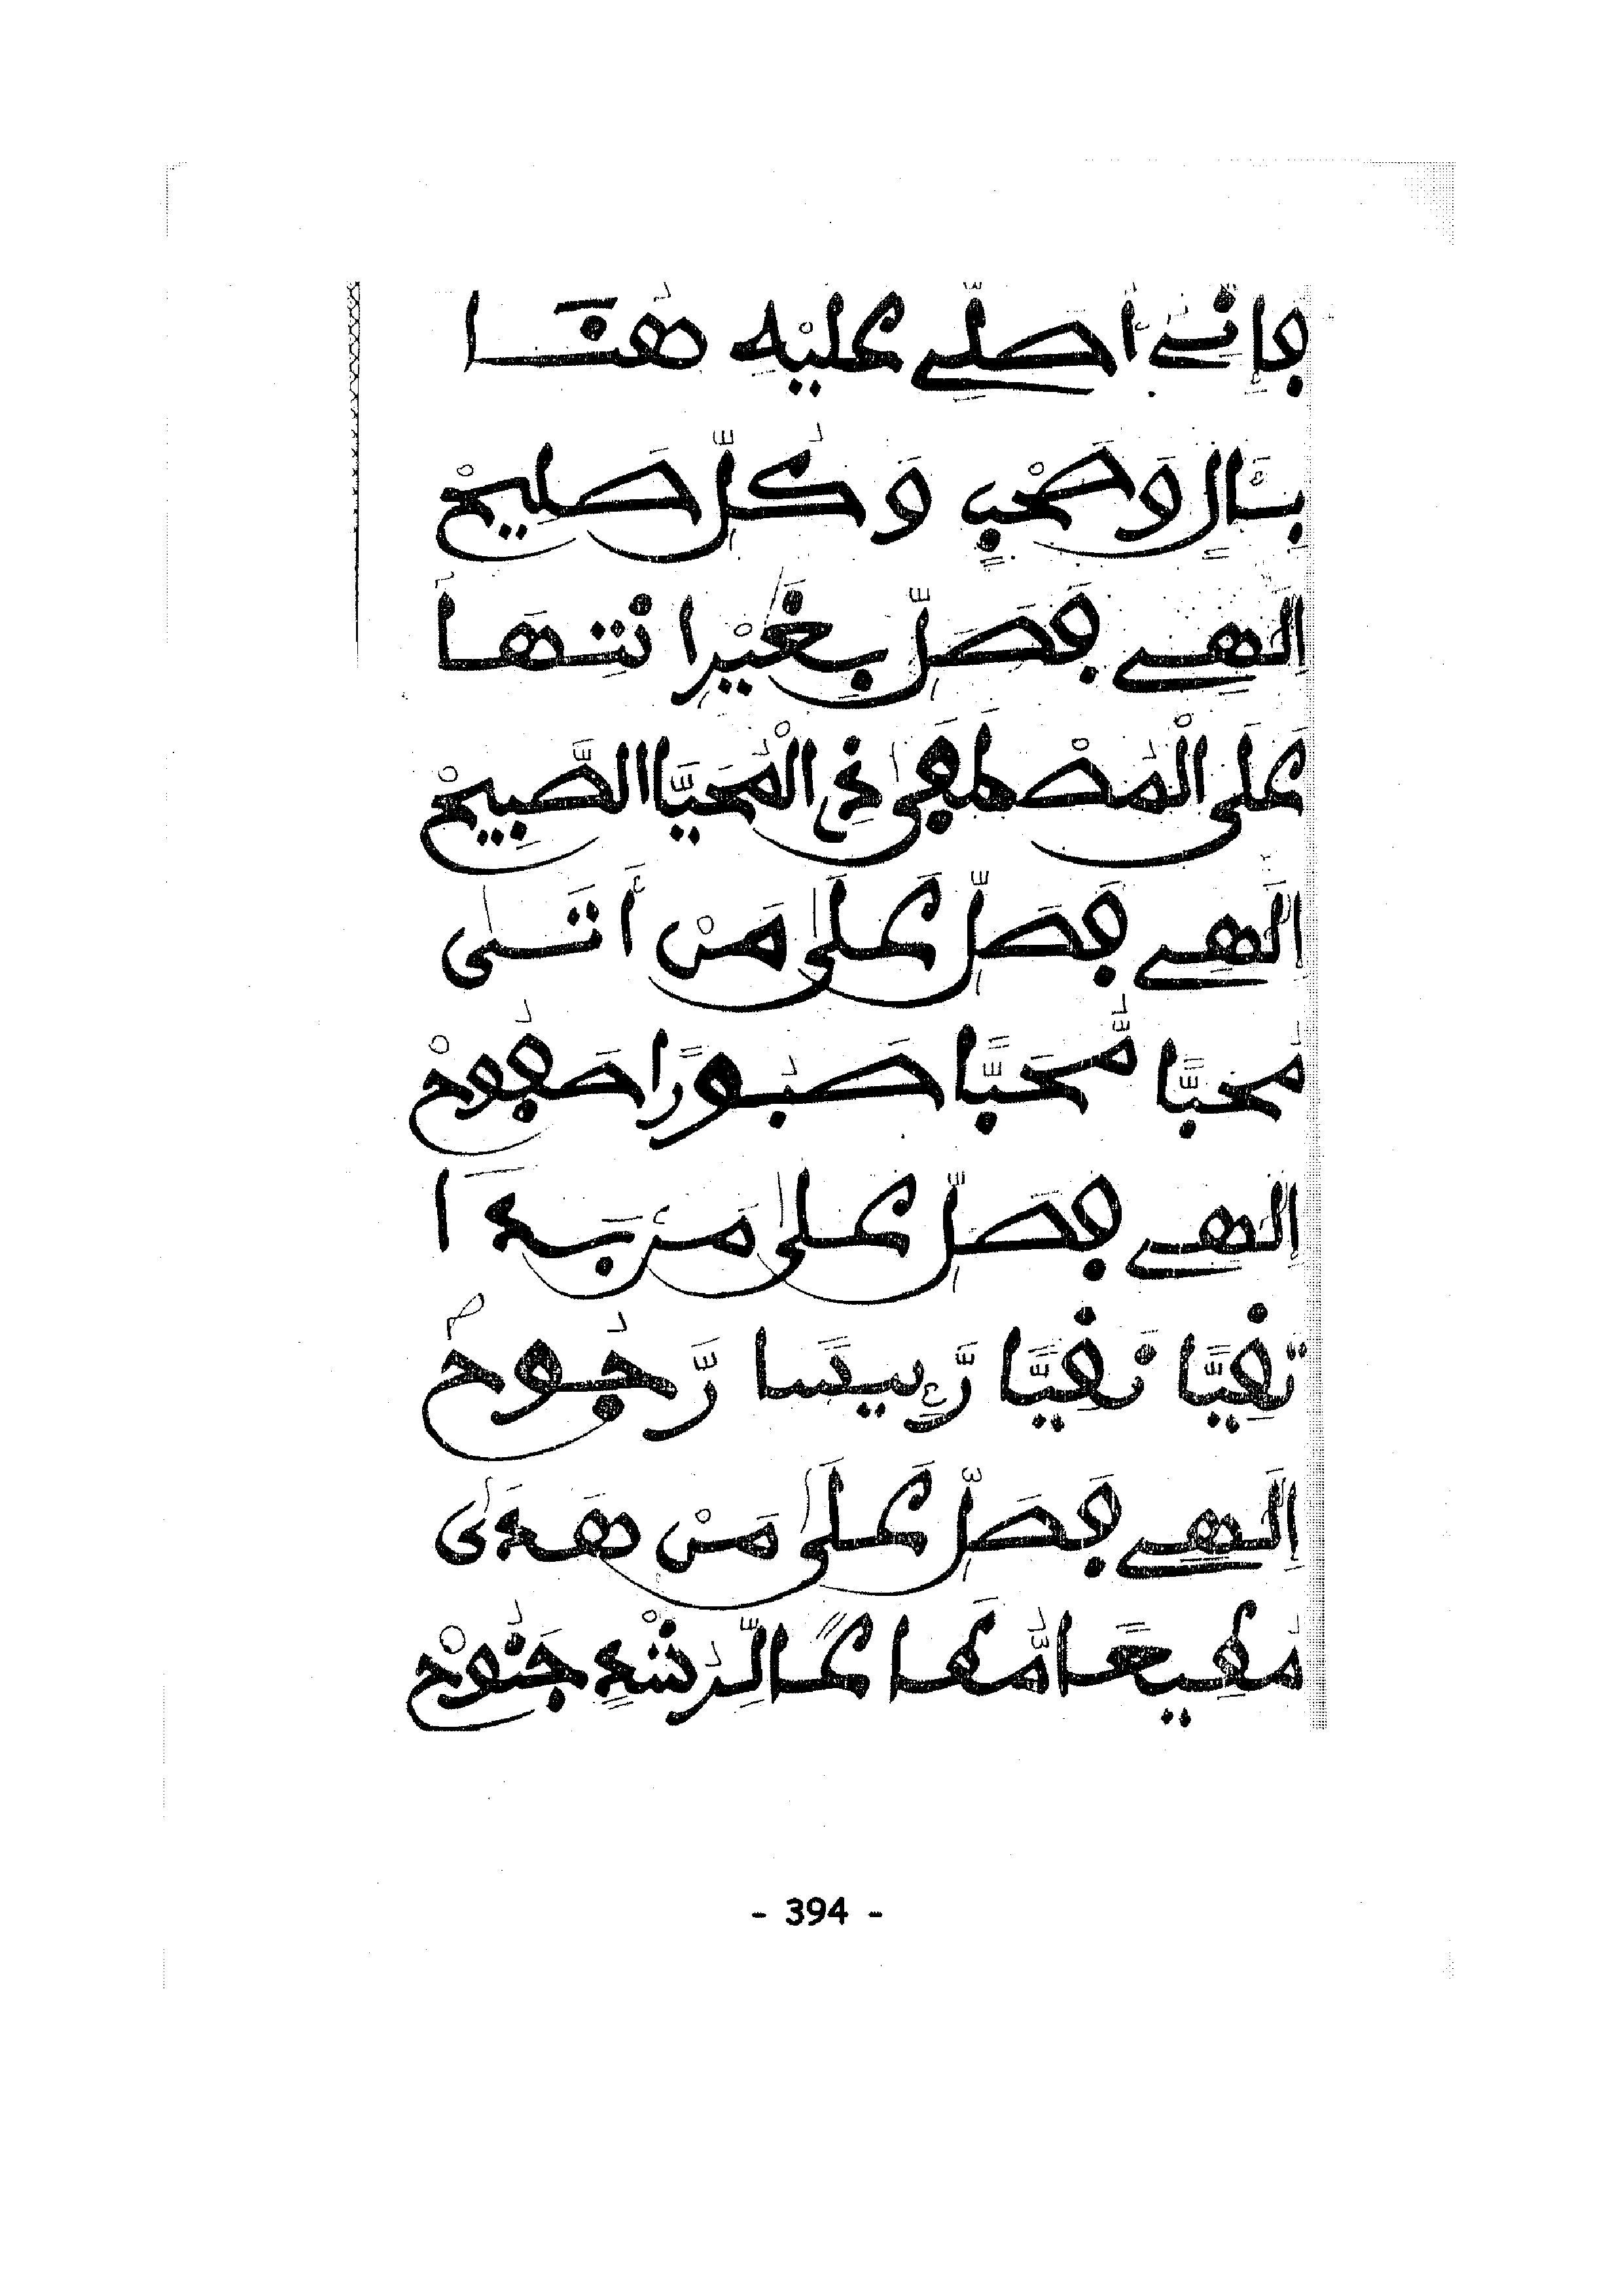 فَإِنِّي أُصَلِّي عَلَيْهِ هُنَا
بِئَالٍ وَصَحْبٍ وَكُلِّ صَلِيحْ
إِلَهِي فَصَلِّ بِغَيْرِ انْتِهَا
عَلَى الْمُصْطَفَى ذِي الْمُحَيَّا الصَّبِيحْ
إِلَهِي فَصَلِّ عَلَى مَنْ أَتَى
مُحِبًّا مُّحَبًّا صَبُورًا صَفُوحْ
إِلَهِي فَصَلِّ عَلَى مَن بَدَا
تَقِيًّا نَقِيًّا رَّئِيسًا رَّجُوحْ
إِلَهِي فَصَلِّ عَلَى مَنْ هَدَى
مُطِيعًا مُّطَاعًا لِرُشْدٍ جَنُوحْ
- 394 -